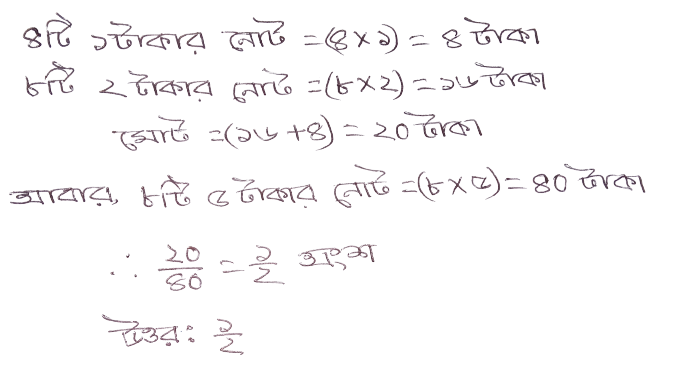 ৪টি ১টাকার নোট = (৪×১) = ৪ টাকা
৮টি ২ টাকার নোট = (৮×২) = ১৬ টাকা
মোট = (১৬+৪) = ২০ টাকা
আবার, ৮টি ৫ টাকার নোট = (৮×৫) = ৪০ টাকা
∴ ২০/৪০ = ১/২ অংশ
উত্তর: ১/২